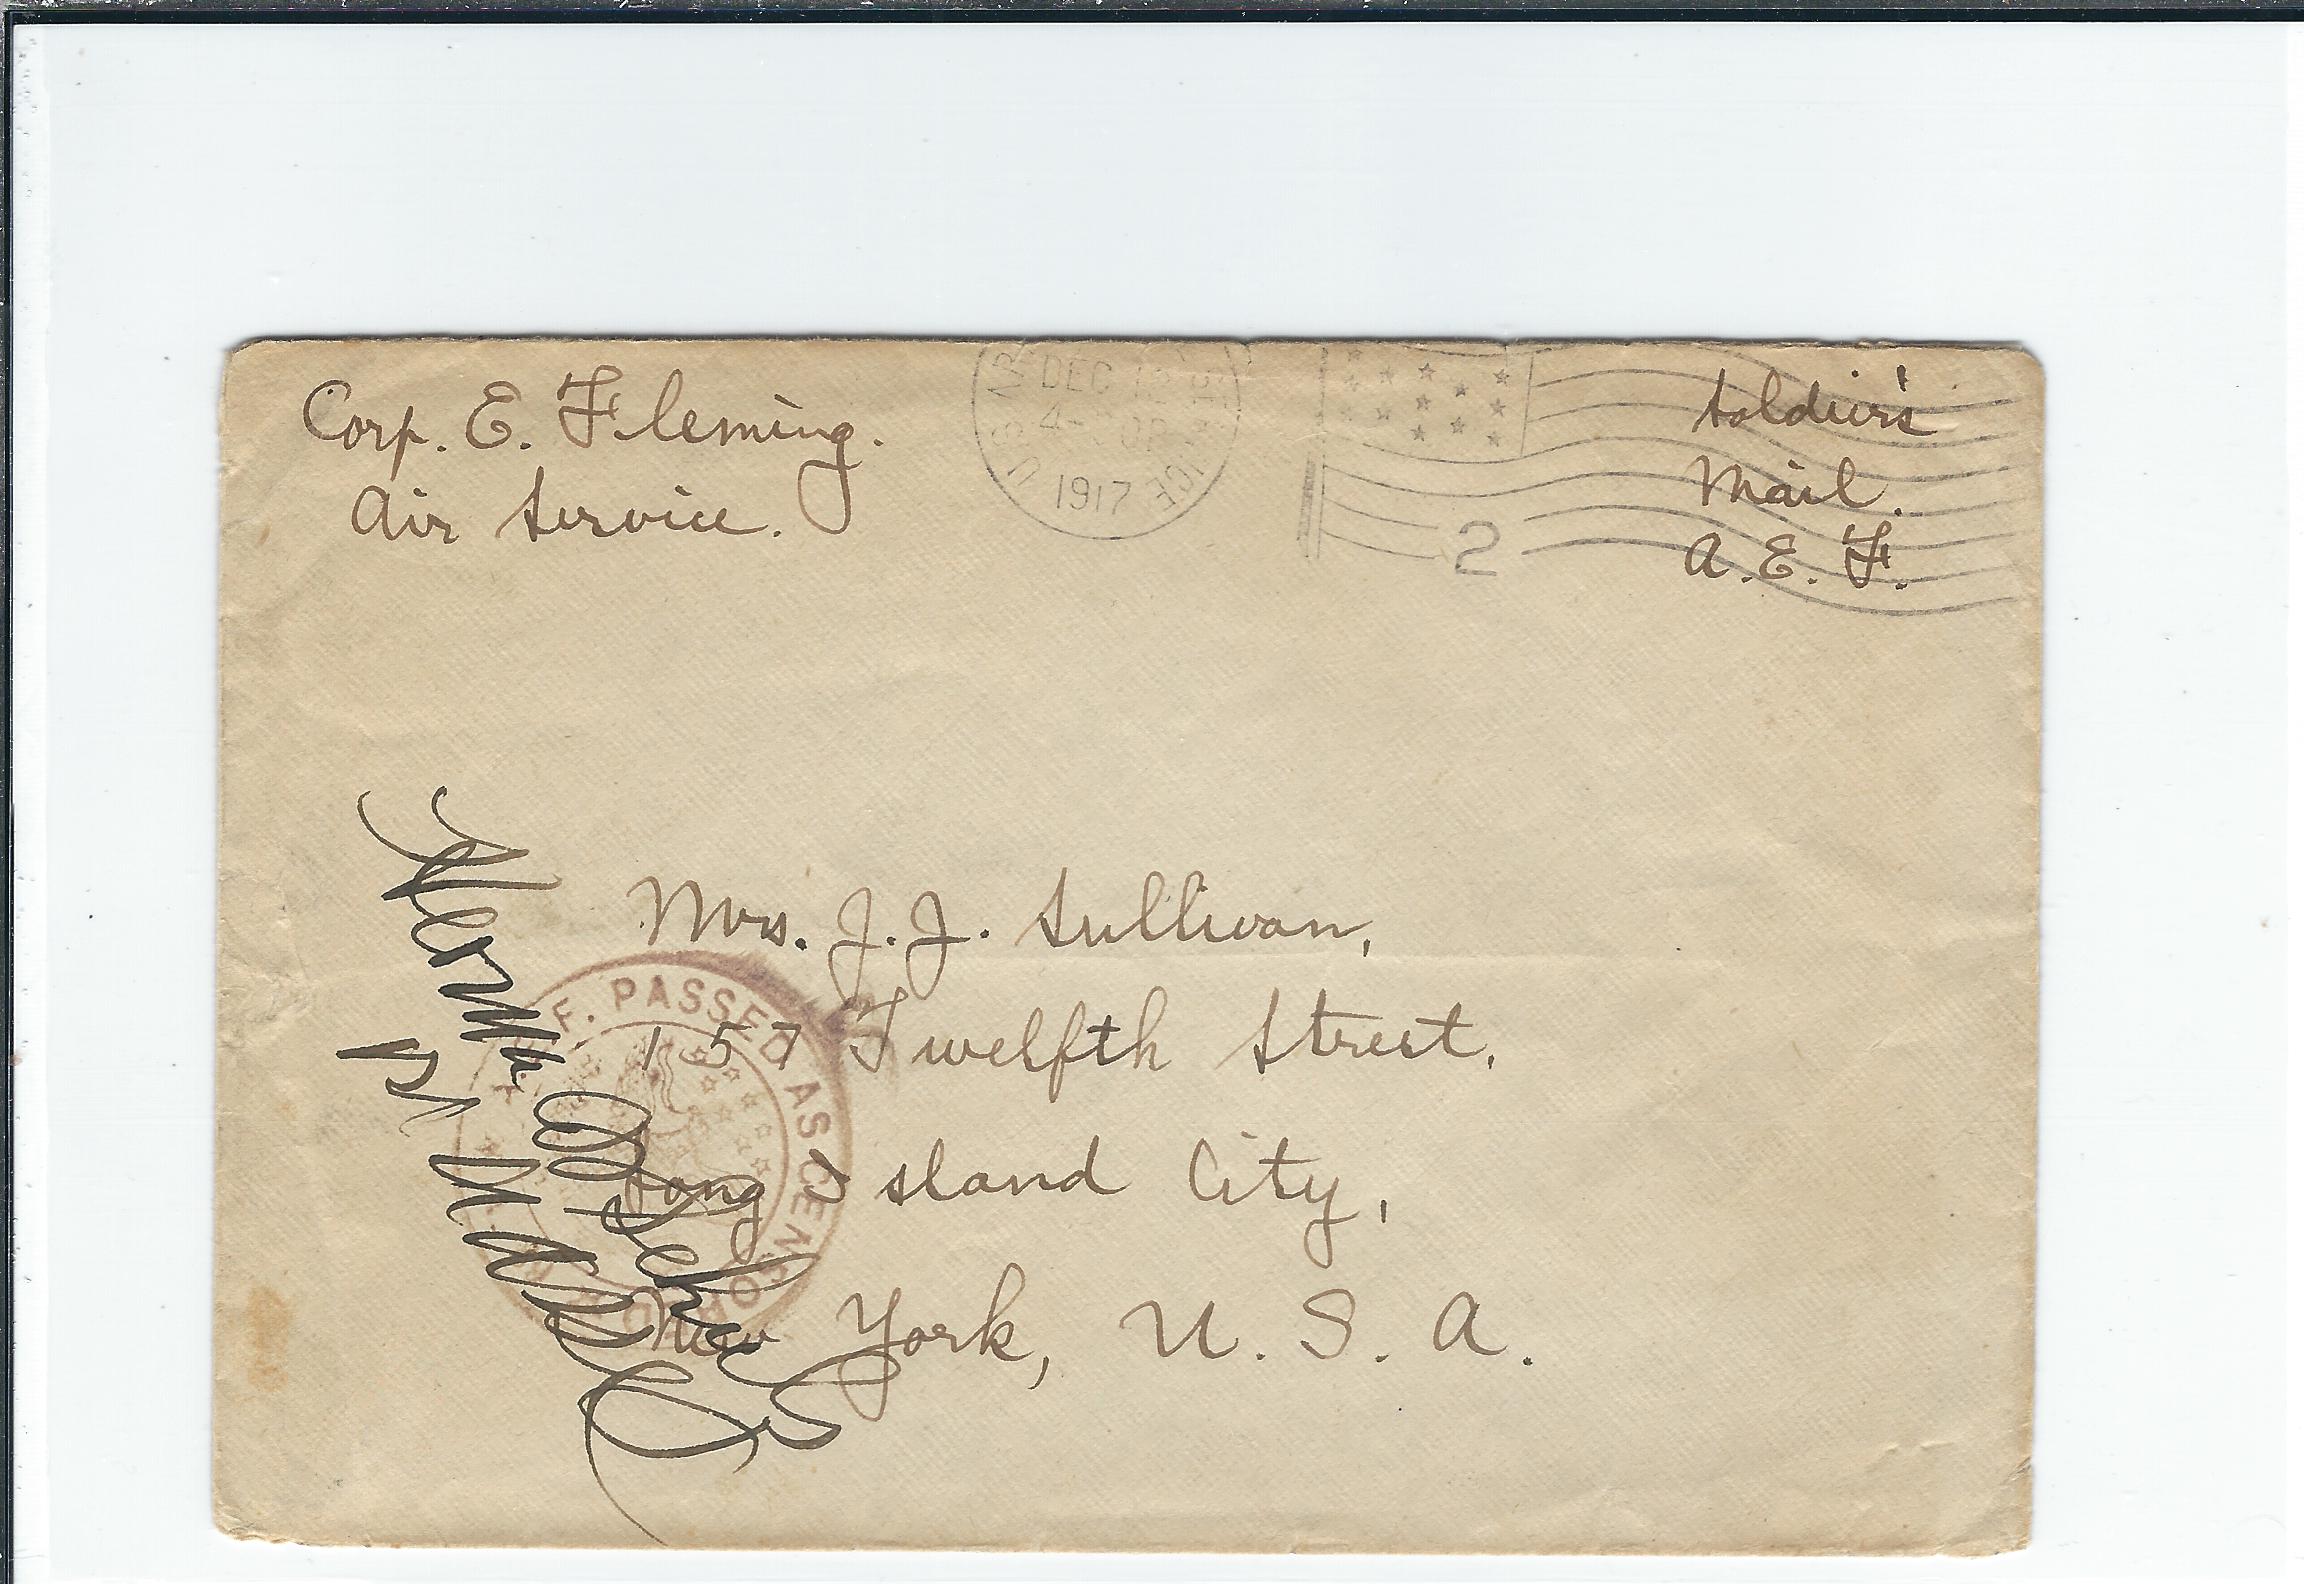 Corp. E. Fleming.
Air Service.
DEC 12
4-30P
1917
2
Soldier's
Mail.
A. E. F.
Mrs. J. J. Sullivan,
157 Twelfth Street.
Long Island City,
New York, U. S. A.
PASSED AS CENSORED